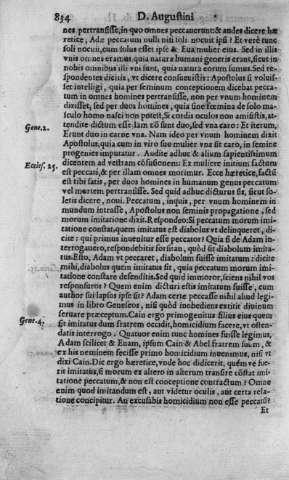 834 D. Augustini
nes pertransisse, in quo omnes peccauerunt, & audes dicere hæ
retice, Adæ peccatum nulli nisi soli nocuit ipsi? Et verè nunc
soli nocuit, cùm solus esset ipse & Eua mulier eius. Sed in illis
vnis omnes eramus, quia natura humani generis erant, sicut in
nobis omnibus illi vos sunt, quia natura eorum sumus. Sed re
spondentes dicitis, vt dicere consueuistis: Apostolus sì voluis-
set intelligi, quia per seminum conceptionem dicebat pecca-
tum in omnes homines pertransisse, non per vnum hominem
dixisset, sed per duos homines, quia sine fœmina de solo ma-
sculo homo nasci non potest, si cordis oculos non amisistis, at-
tendite dictum esse: Iam nō sunt duo, sed vna caro: Et iterum,
Gene. 2. Erunt duo in carne vna. Nam ideo per vnum hominem dixit
Apostolus, quia cum in viro suo mulier vna sit caro, in semine
progenies imputatur. Audite adhuc & alium sapientissimum
dicentem ad vestram cōfusionem: Ex muliere initium factum
Ecclis. 25. est peccati, & per illam omnes morimur. Ecce hæretice, factū
est tibi satis, per duos homines in humanum genus peccatum
vel mortem pertransisse. Sed quid adhuc dicturus sis, sicut so-
letis dicere, noui. Peccatum, inquis, per vnum hominem in
mundum intrasse, Apostolus non seminis propagatione, sed
morum imitatione dixit. Respondeo: Si peccatum morum imi-
tatione constat, quem imitatus est diabolus vt delinqueret, di-
cite? qui primus inuenitur esse peccator? Quia si de Adam in-
terrogauero, respondebitur forsitan, quòd sit diabolum imita-
tus. Esto, Adam vt peccaret, diabolum fuisse imitatum: dicite
mihi, diabolus quem imitatus sit, quia peccatum morum imi-
tatione constare defenditis. Sed quid immoror, sciens nihil vos
responsuros? Quem enim dicturi estis imitatum fuisse, cum
author sui lapsus ipse sit? Adam certe peccasse nihil aliud legi-
mus in libro Geneseos, nisi quòd inobediens extitit diuinum
Gene. 4. seruare præceptum. Cain ergo primogenitus filius eius quem
sit imitatus dum fratrem occidit, homicidium facere, vt osten-
datis interrogo? Quatuor enim tunc homines fuisse legimus,
Adam scilicet & Euam, ipsum Cain & Abel fratrem suum, &
ex his neminem fecisse primo homicidium inuenimus, nisi vt
dixi Cain. Dic ergo hæretice, vnde hoc didicerit, quem ve fue-
rit imitatus, si morum ex altero in alterum transire costat imi-
tatione peccatum, & non est conceptione contractum? Omne
enim quod imitandum est, aut videtur oculis, aut certa rela-
tione concipitur. An excusabis homicidium non esse peccatū?
Et